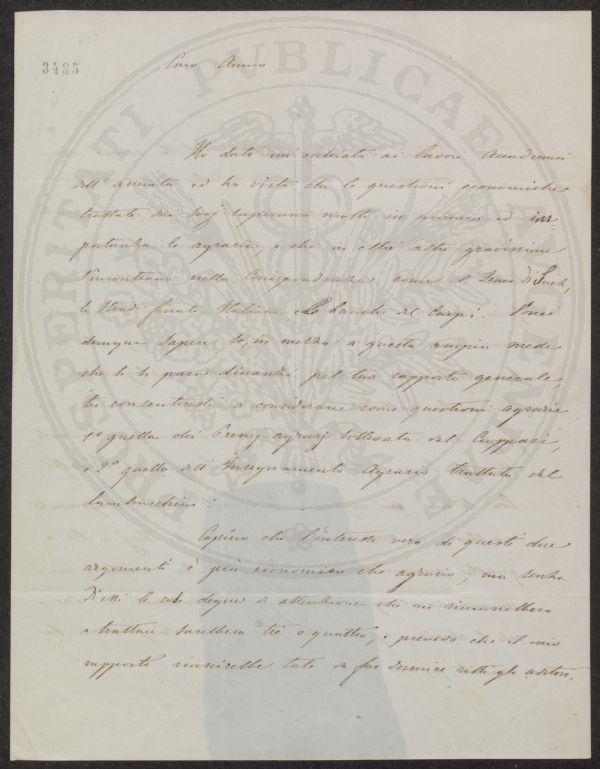 3485
Caro Amico
Ho dato un' occhiata ai lavori Accademici
dell' annata ed ho visto che le questioni economiche
trattate dai Socj superano molto in numero ed im
portanza le agrarie, e che in oltre altre gravissime
s'incontrano nella Corrispondenza come l'Istmo di Suez,
le Strade ferrate Italiane e le banche del Carpi. Vorrei
dunque sapere se, in mezzo a questa ampia mede
che ti si para dinanzi pel tuo rapporto generale
tu consentiresti a considerare come questioni agrarie
1º quella dei Premj agrarj sollevata dal Cuppari,
e 2º quella dell' Insegnamento Agrario trattata dal
Lambruschini.
Capisco che l'interesse vero di questi due
argomenti è più economico che agrario, ma senza
d'essi le cose degne di attenzione che mi rimarrebbero
a trattare sarebbero tre o quattro, e prevedo che il mio
rapporto riuscirebbe tale da far dormire ritti gli uditori.
PROSPERITATI PUBLICAE AUGENDAE